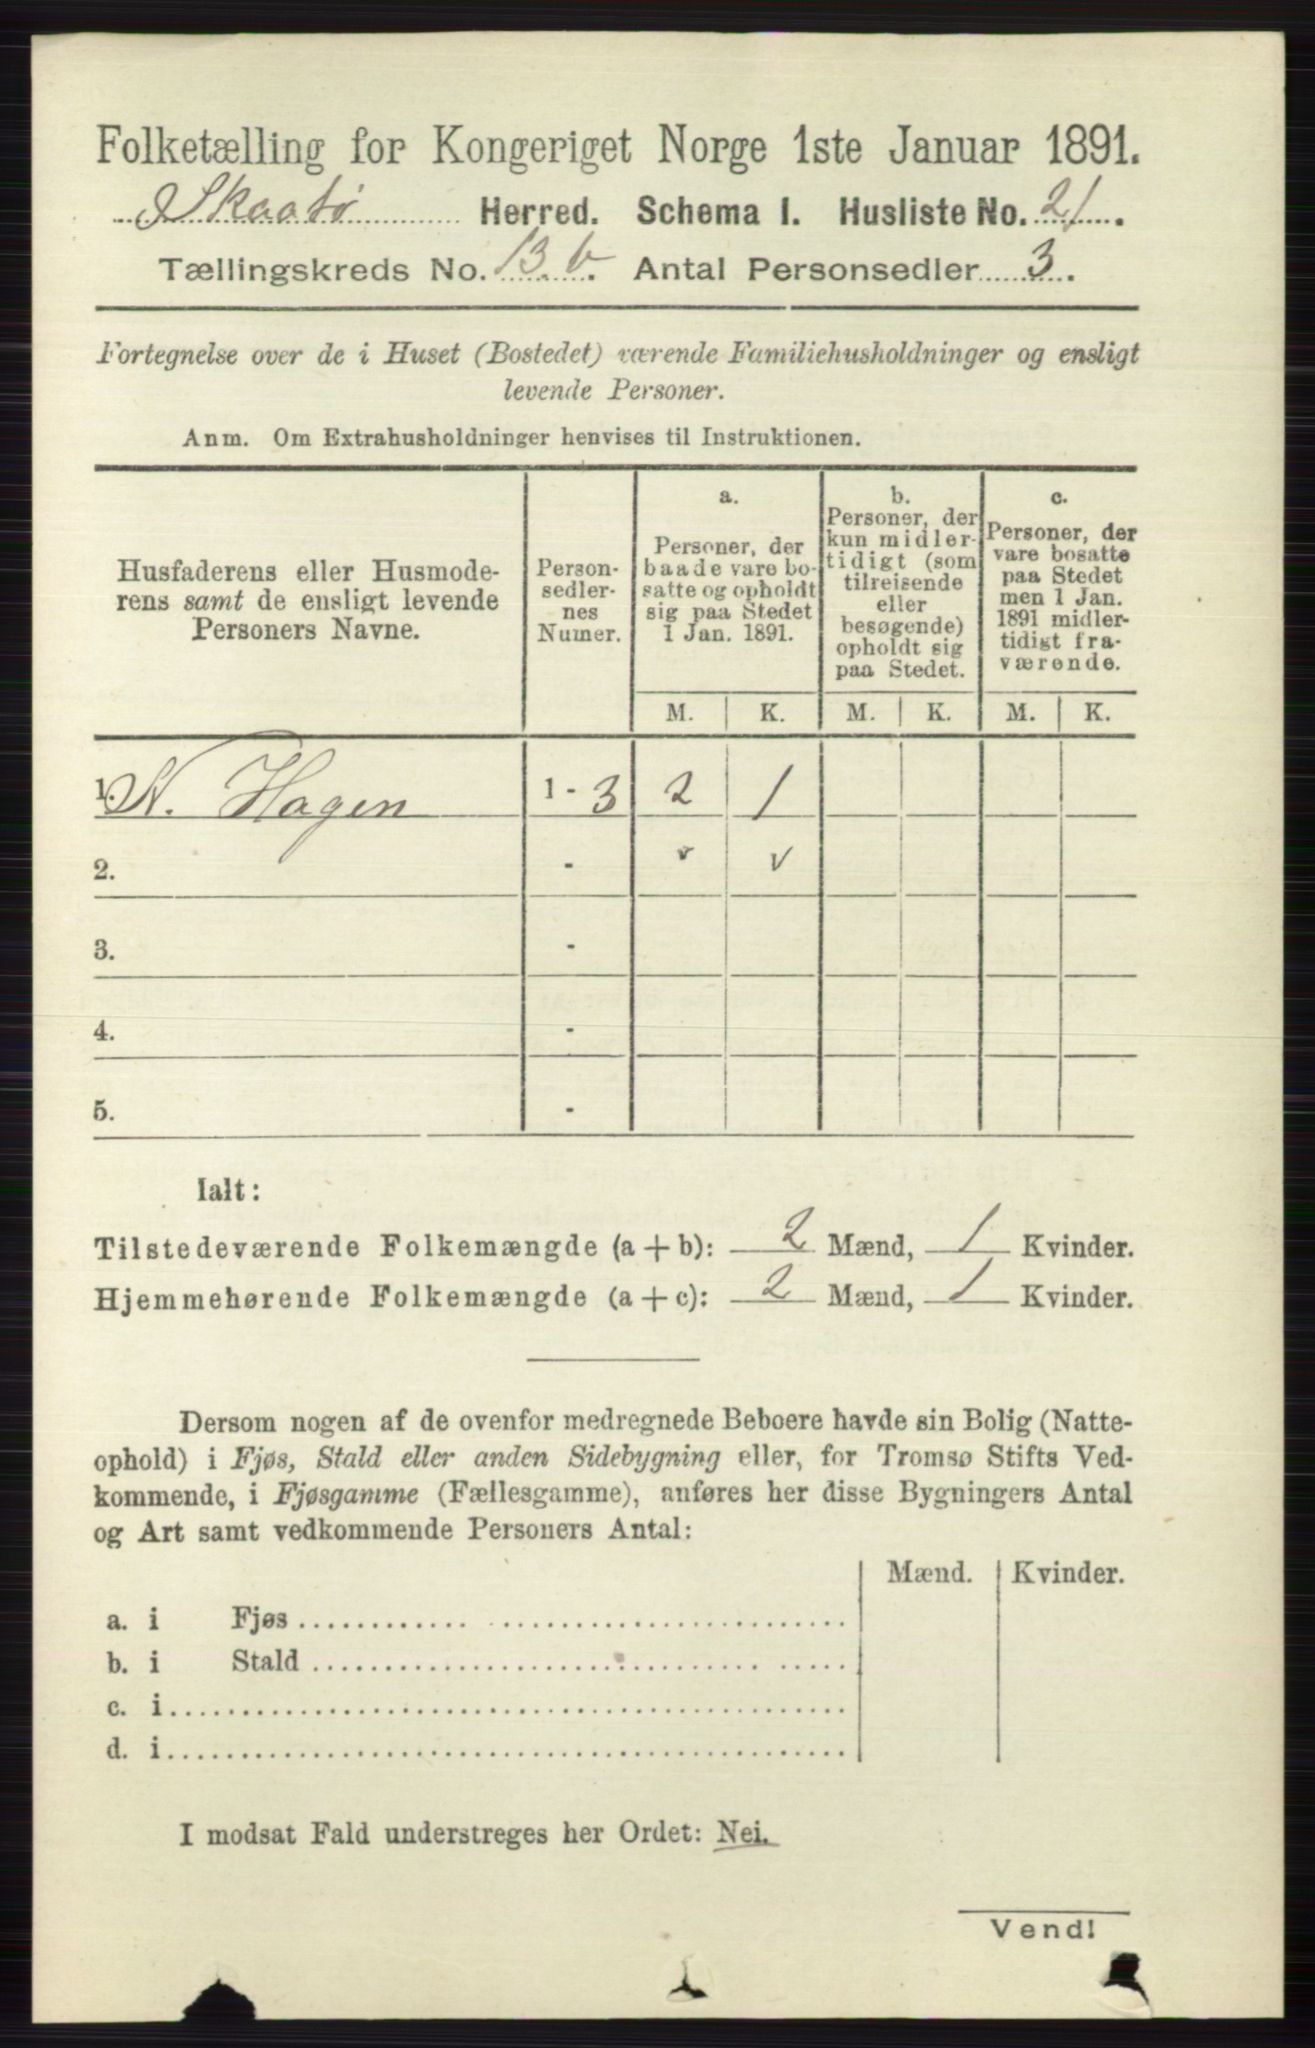 Folketælling for Kongeriget Norge 1ste Januar 1891.
Skaatø Herred. Schema I. Husliste No. 21.
Tællingskreds No. 13. b. Antal Personsedler 3.
Fortegnelse over de i Huset (Bostedet) værende Familiehusholdninger og ensligt
levende Personer.
Anm. Om Extrahusholdninger henvises til Instruktionen.
Husfaderens eller Husmode-
rens samt de ensligt levende
Personers Navne.
Person-
sedler-
nes
Numer.
a.
Personer, der
baade vare bo-
satte og opholdt
sig paa Stedet
1 Jan. 1891.
b.
Personer, der
kun midler-
tidigt (som
tilreisende
eller
besøgende)
opholdt sig
paa Stedet.
c.
Personer, der
vare bosatte
paa Stedet
men 1 Jan.
1891 midler-
tidigt fra-
værende.
M. K. M. K. M. K.
1. N. Hagen 1 - 3 2 1
2. - v v
3. -
4. -
5. -
Ialt:
Tilstedeværende Folkemængde (a + b): 2 Mænd, 1 Kvinder.
Hjemmehørende Folkemængde (a + c): 2 Mænd, 1 Kvinder.
Dersom nogen af de ovenfor medregnede Beboere havde sin Bolig (Natte-
ophold) i Fjøs, Stald eller anden Sidebygning eller, for Tromsø Stifts Ved-
kommende, i Fjøsgamme (Fællesgamme), anføres her disse Bygningers Antal
og Art samt vedkommende Personers Antal:
Mænd. Kvinder.
a. i Fjøs
b. i Stald
c. i
d. i
I modsat Fald understreges her Ordet: Nei.
Vend!